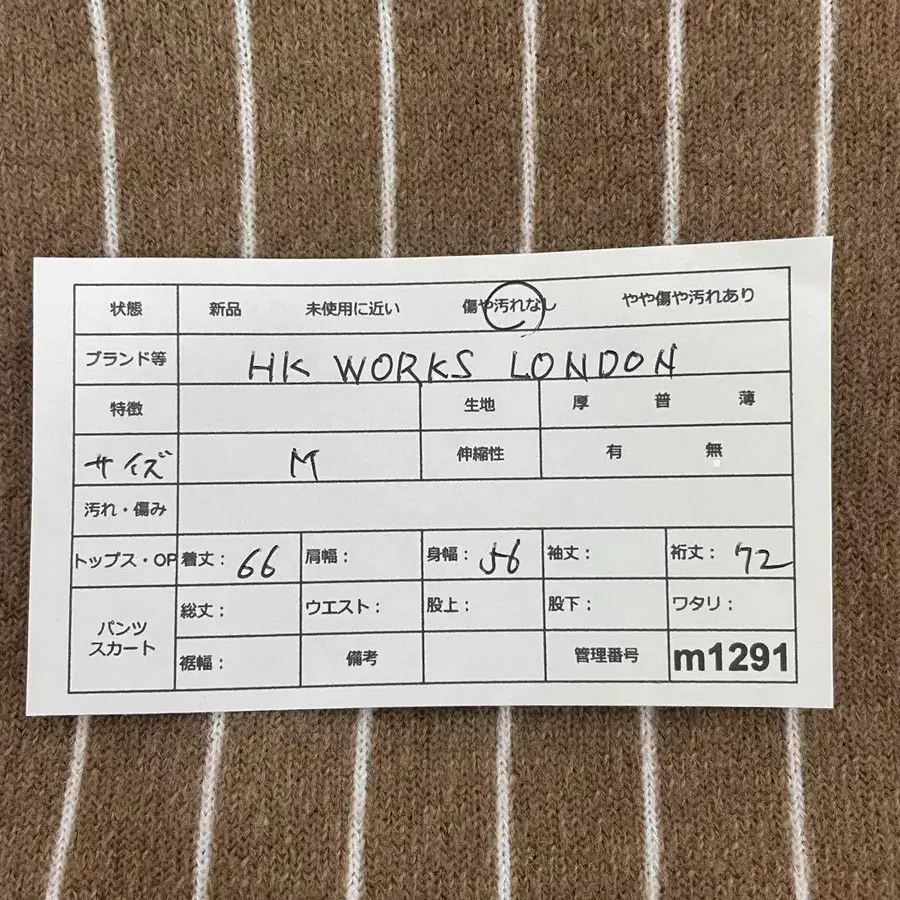 状態 新品 未使用に近い 傷や汚れなし やや傷や汚れあり
ブランド等 HK WORKS LONDON
特徴 生地 厚 普 薄
サイズ M 伸縮性 有 無
汚れ・傷み
トップス・OP 着丈: 66 肩幅: 身幅: 56 袖丈: 裄丈: 72
パンツ スカート 総丈: ウエスト: 股上: 股下: ワタリ:
裾幅: 備考 管理番号 m1291